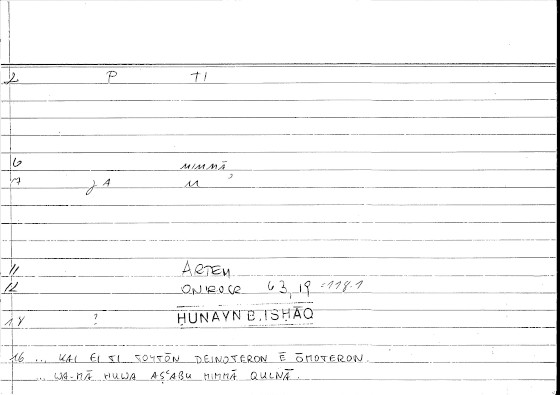 2 P TI
6 MIMMĀ
7 JA M
11 ARTEM
12 ONIROCR 63,19 = 118.1
14 ? ḤUNAYN B. ISḤĀQ
16 ... KAI EI TI TOYTŌN DEINOTERON Ē ŌMOTERON.
... WA-MĀ HUWA AṢʿABU MIMMĀ QULNĀ.